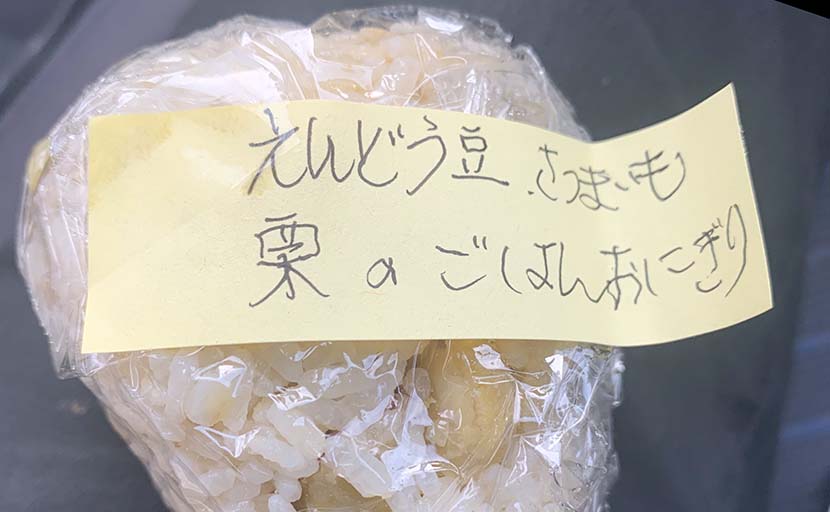 えんどう豆、さつまいも
栗のごはんおにぎり